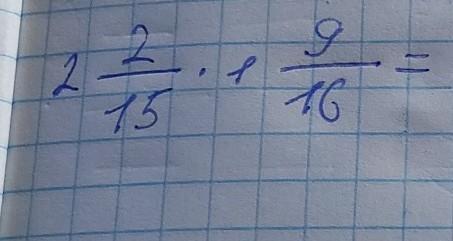 2 2/15 · 1 9/16 =